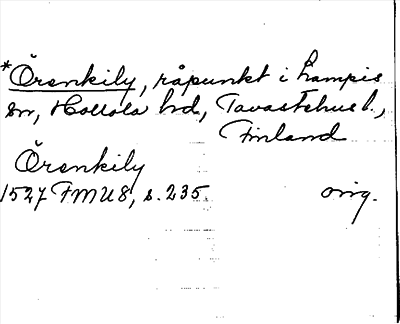 *Örenkily, råpunkt i Lampis
sn, Hollola hd, Tavastehus l.,
Finland
Örenkily
1527 FMU 8, s. 235. orig.